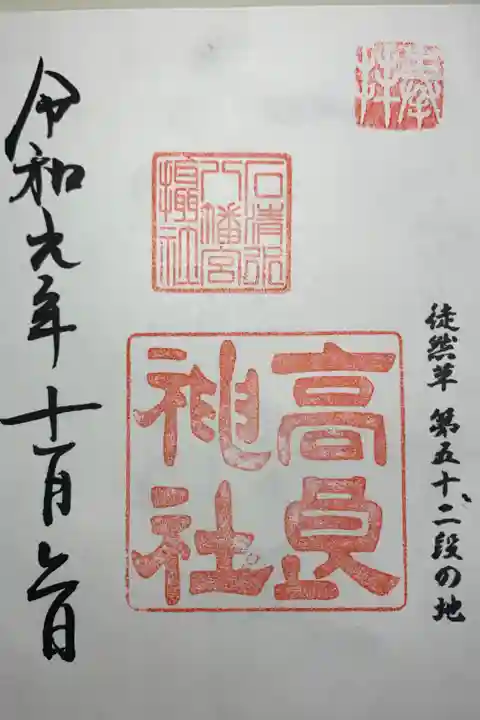 奉拝
徒然草 第五十二段の地
石清水
八幡宮
摂社
高良
神社
令和元年十一月六日